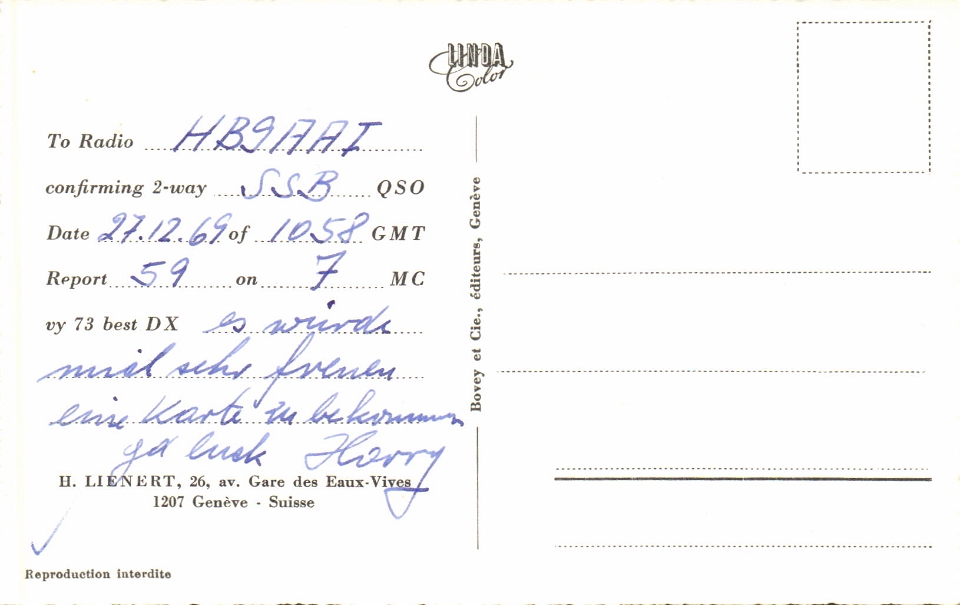 LINDA
Color
To Radio HB9AAI
confirming 2-way SSB QSO
Date 27.12.69 of 1058 GMT
Report 59 on 7 MC
vy 73 best DX es würde
mich sehr freuen
eine Karte zu bekommen
gd luck Harry
H. LIENERT, 26, av. Gare des Eaux-Vives
1207 Genève - Suisse
Reproduction interdite
Bovey et Cie., éditeurs, Genève